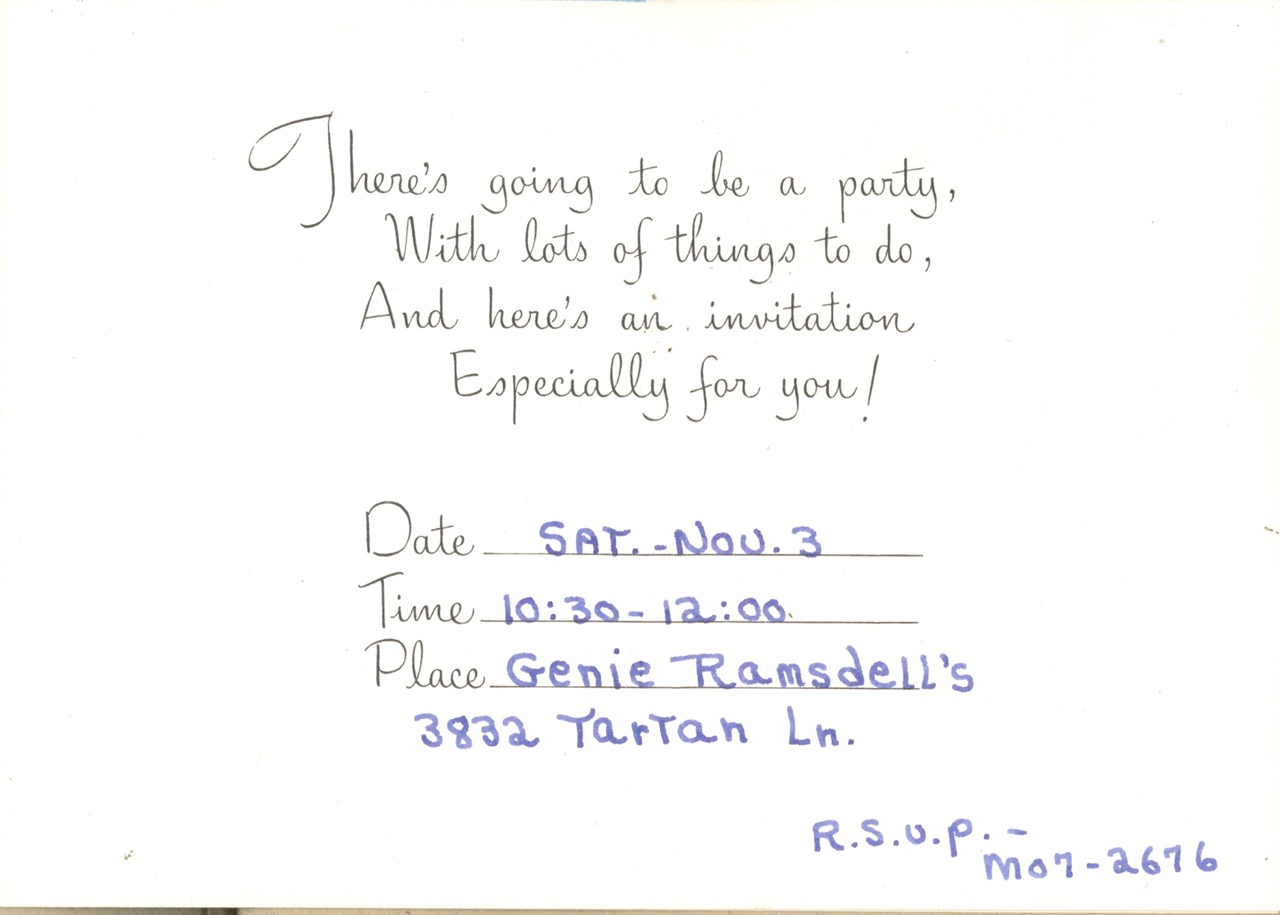 There's going to be a party,
With lots of things to do,
And here's an invitation
Especially for you!
Date SAT.-Nov. 3
Time 10:30-12:00
Place Genie Ramsdell's
3832 Tartan Ln.
R.S.V.P. -
MO7-2676